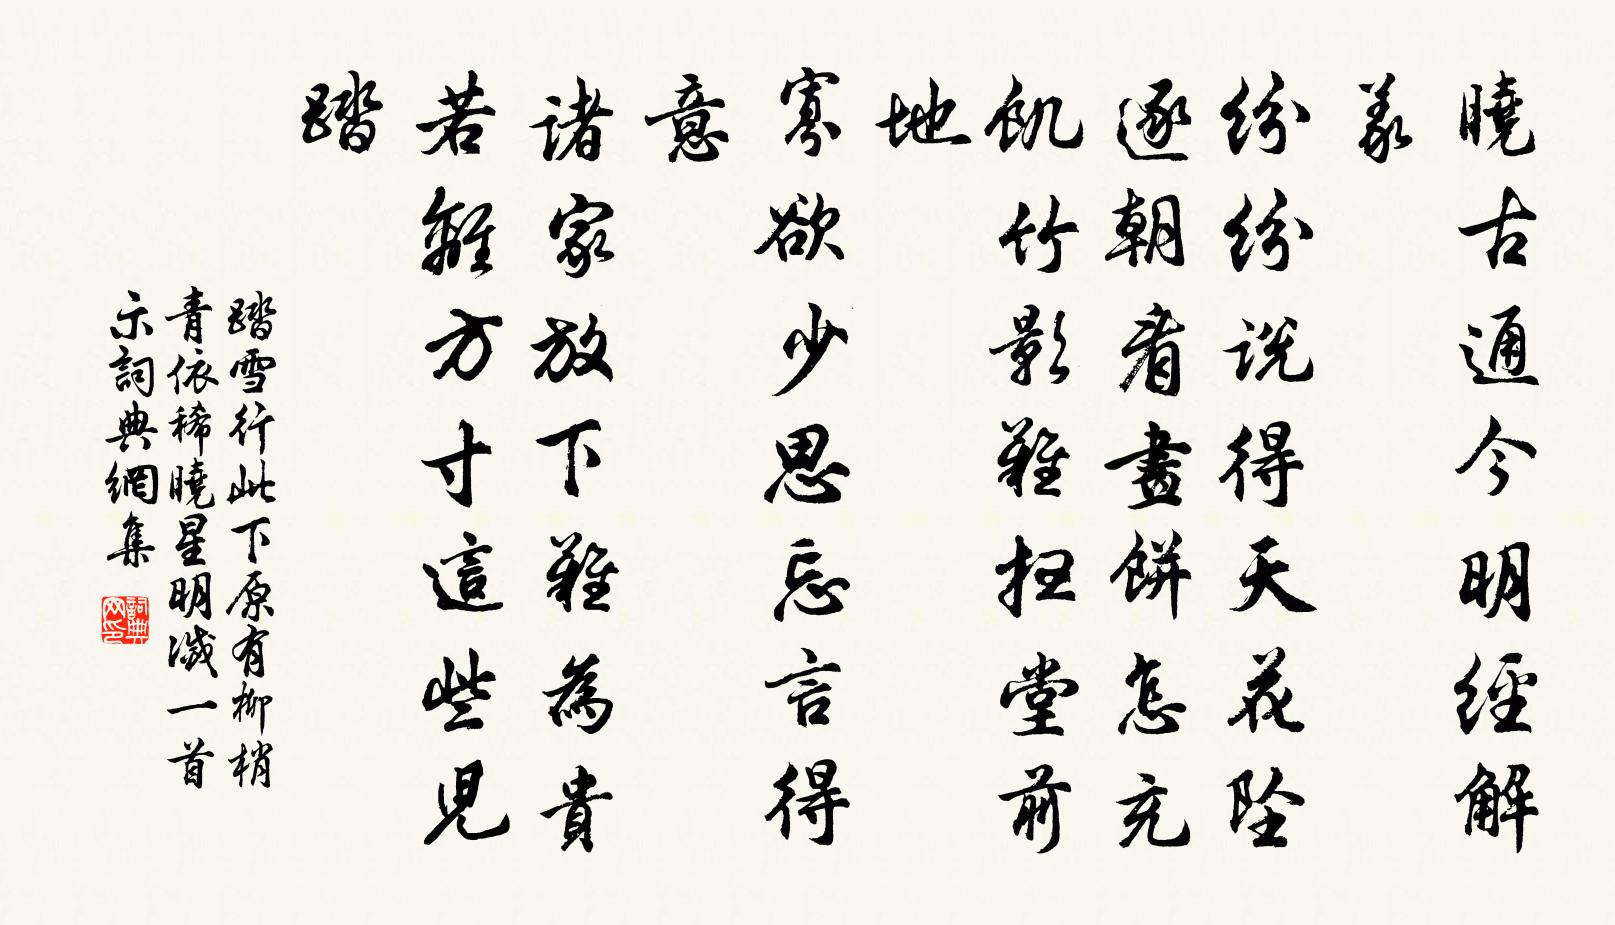 曉古通今明經解
義
紛紛説得天花墜
逐朝看畫餅怎充
飢竹影難扫堂前
地
寡欲少思忘言得
意
諸家放下難為貴
若離方寸這些兒
踏
踏雪行此下原有柳梢
青依稀曉星明滅一首
示詞典網集
詞典網印